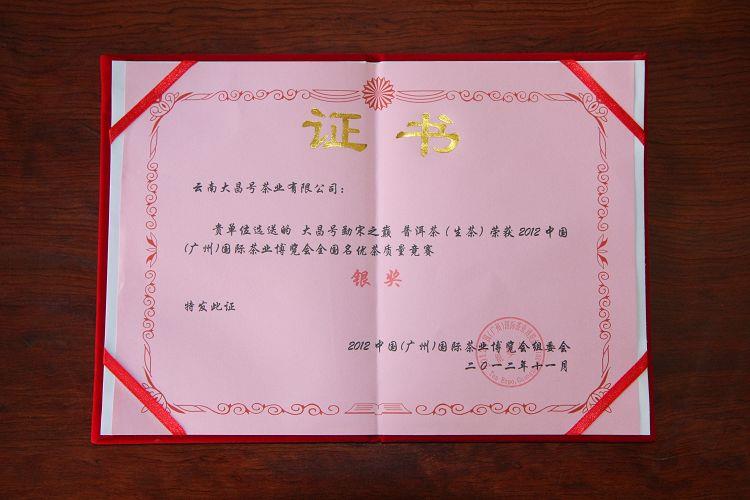 证书
云南大昌号茶业有限公司：
贵单位选送的 大昌号勐宋之巅 普洱茶（生茶）荣获2012中国
(广州)国际茶业博览会全国名优茶质量竞赛
银奖
特发此证
2012中国(广州)国际茶业博览会组委会
二〇一二年十一月